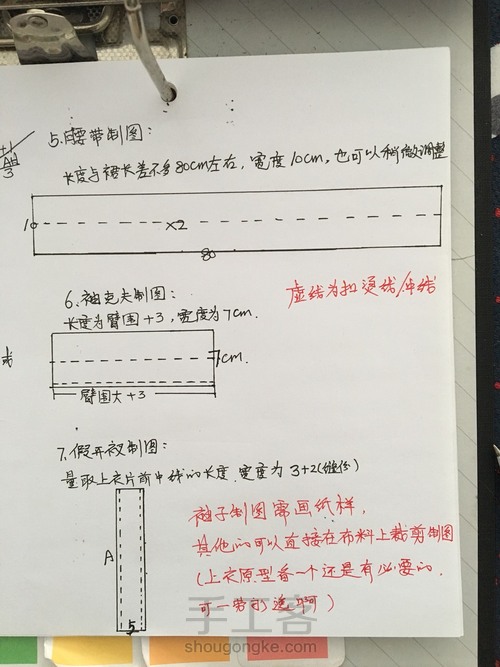 5.腰带制图：
长度与裙长差不多80cm左右，宽度10cm，也可以稍微调整
10
×2
80
6.袖克夫制图：
长度为臂围+3，宽度为7cm.
虚线为扣烫线/中线
7cm.
臂围大+3
7.假开衩制图：
量取上衣片前中线的长度 宽度为3+2(缝份)
A
5
袖子制图需画纸样，
其他的可以直接在布料上裁剪制图
(上衣原型备一个还是有必要的，
手工客
shougongke.com